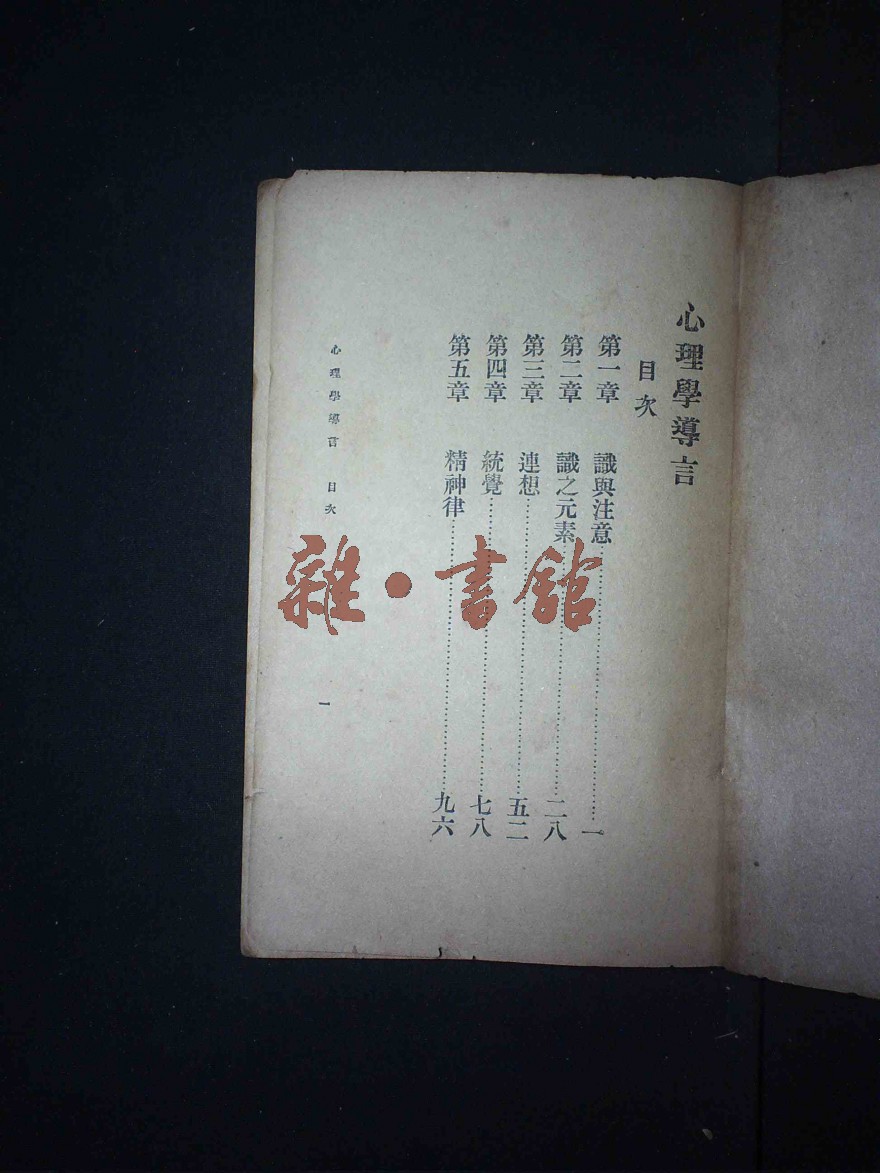 心理學導言
目次
第一章 識與注意……一
第二章 識之元素……二八
第三章 連想……五二
第四章 統覺……七八
第五章 精神律……九六
心理學導言 目次 一
雜·書館